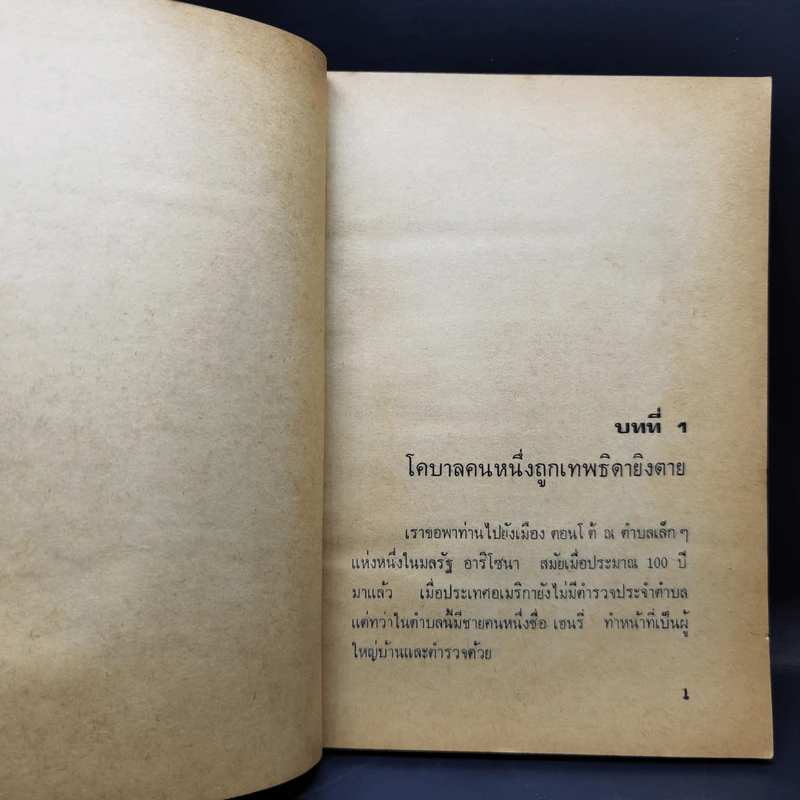 บทที่ 1
โคบาลคนหนึ่งถูกเทพธิดายิงตาย
เราขอพาท่านไปยังเมือง ตอนโต้ ณ ตำบลเล็ก ๆ
แห่งหนึ่งในมลรัฐ อาริโซนา สมัยเมื่อประมาณ 100 ปี
มาแล้ว เมื่อประเทศอเมริกายังไม่มีตำรวจประจำตำบล
แต่ทว่าในตำบลนี้มีชายคนหนึ่งชื่อ เฮนรี่ ทำหน้าที่เป็นผู้
ใหญ่บ้านและตำรวจด้วย
1